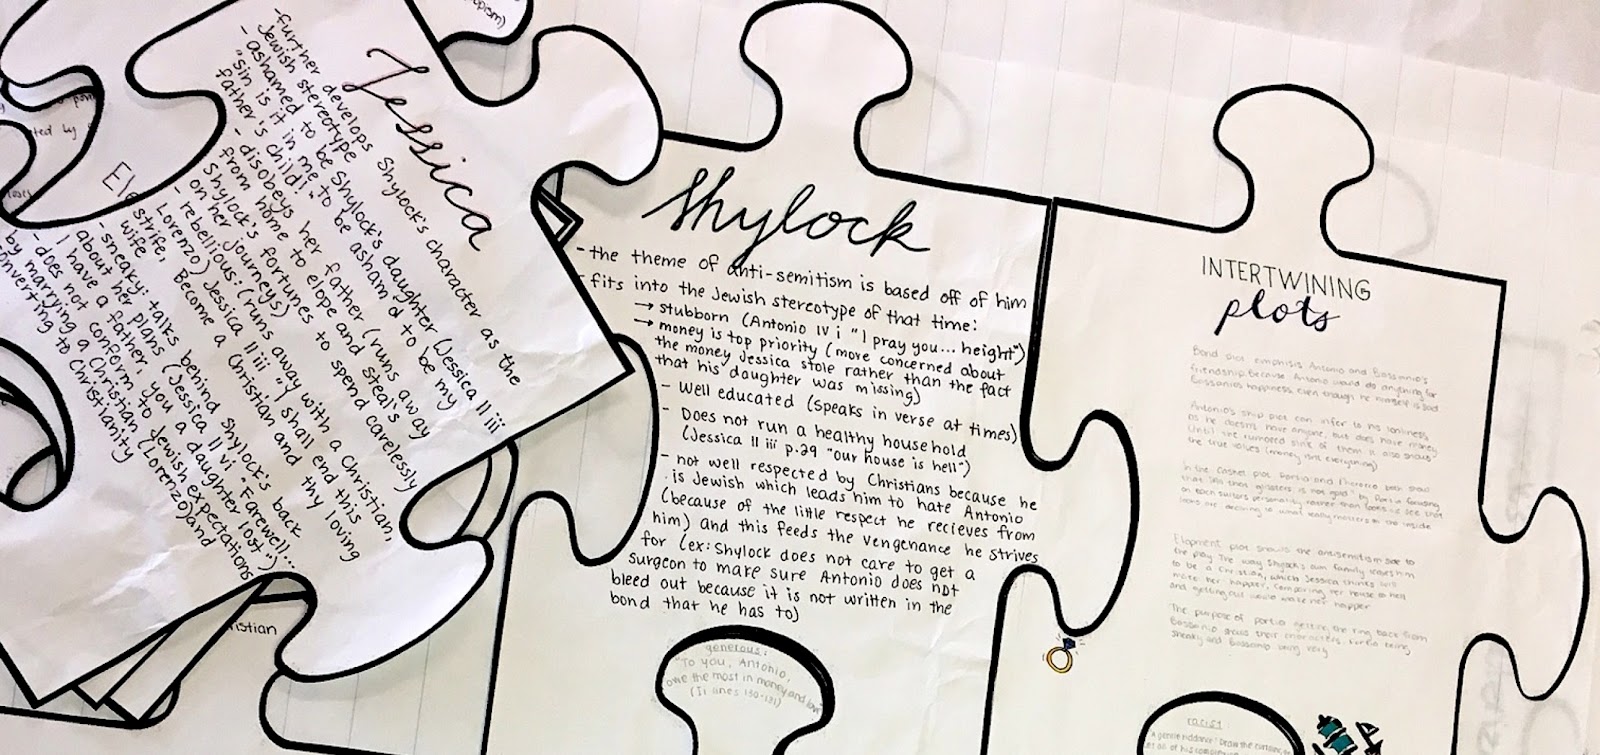 Jessica
-further develops Shylock's character as the
Jewish stereotype
- ashamed to be Shylock's daughter (Jessica II iii
"sin is it in me to be asham'd to be my
father's child!"
- disobeys her father (runs away
from home to elope and steal's
Shylock's fortunes to spend carelessly
on her journeys)
- rebellious: (runs away with a Christian,
Lorenzo) Jessica II iii "I shall end this
strife, Become a Christian and thy loving
wife"
- sneaky: talks behind Shylock's back
about her plans (Jessica II vi "Farewell...
I have a father, you a daughter lost")
- does not conform to Jewish expectations
by marrying a Christian (Lorenzo) and
converting to Christianity
Shylock
- the theme of anti-semitism is based off of him
- fits into the Jewish stercotype of that time:
→ stubborn (Antonio IV i "I pray you... height")
→ money is top priority (more concerned about
the money Jessica stole rather than the fact
that his daughter was missing)
- Well educated (speaks in verse at times)
- Does not run a healthy household
(Jessica II iii p.29 "our house is hell")
- not well respected by Christians because he
is Jewish which leads him to hate Antonio
(because of the little respect he recieves from
him) and this feeds the vengenance he strives
for (ex: Shylock does not care to get a
surgeon to make sure Antonio does not
bleed out because it is not written in the
bond that he has to)
generous:
"To you, Antonio,
owe the most in money and love"
(Ii lines 130-131)
INTERTWINING
plots
Bond plot emphasis Antonio and Bassanio's
friendship because Antonio would do anything for
Bassanio's happiness even though he himself is sad
Antonio's ship plot can infer to his lonliness
as he doesn't have anyone, but does have money
Until the rumored sink of them it also shows
the true values (money isn't everything)
In the casket plot, Portia and Morocco both show
that "All that glisters is not gold" by Portia focusing
on each suitors personality rather than looks
looks are deceiving to what really matters on the inside
Elopment plot shows the antisemitism due to
the play. The way Shylock's own family leaves him
to be a Christian, which Jessica thinks will
make her happier, comparing her house to hell
and getting out would make her happier
The purpose of portia getting the ring back from
Bassanio shows their characters, Portia being
sneaky and Bassanio being very
racist
"A gentle riddance." Draw the curtains,